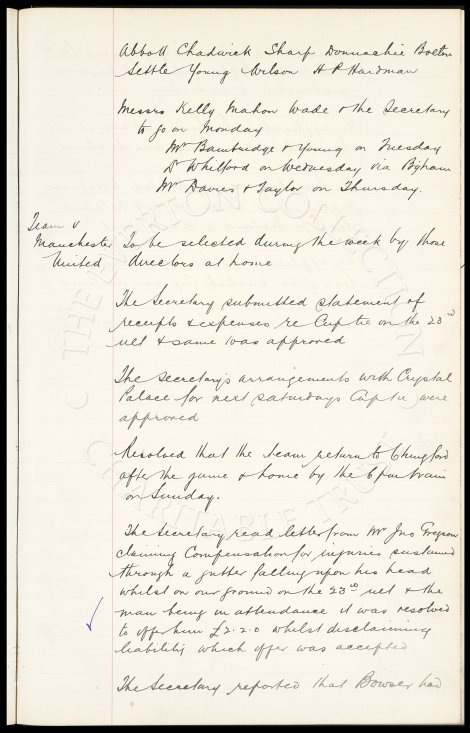 Abbott Chadwick Sharp Donnachie Bolton
Settle Young Wilson H P Hardman
Messrs Kelly Mahon Wade & the Secretary
to go on Monday
Mr Bainbridge & Young on Tuesday
Dr Whitford on Wednesday via
Mr Davies & Taylor on Thursday.
Team v
Manchester
United
To be selected during the week by those
directors at home
The Secretary submitted statement of
receipts & expenses re Cup tie on the 23rd
ult & same was approved
The Secretary's arrangements with Crystal
Palace for next Saturdays Cup tie were
approved
Resolved that the team return to Chingford
after the game & home by the 6 pm train
on Sunday.
The Secretary read letter from Mr Jno Gregson
claiming Compensation for injuries sustained
through a gutter falling upon his head
whilst on our ground on the 23rd ult & the
man being in attendance it was resolved
to offer him £2.2.0 whilst disclaiming
liability which offer was accepted
The Secretary reported that Bowser had
THE EVERTON COLLECTION
CHARITABLE TRUST